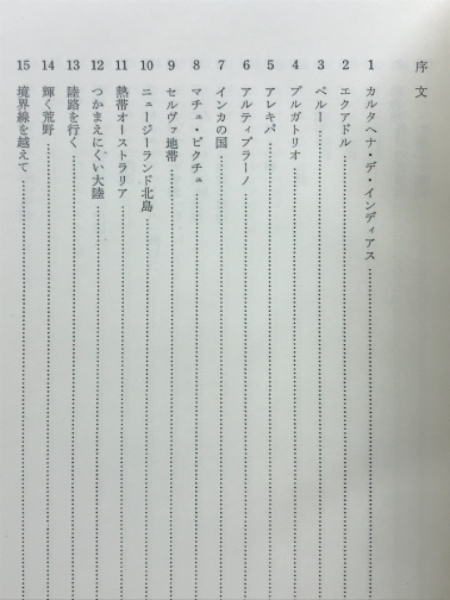 序文
1 カルタヘナ・デ・インディアス
2 エクアドル
3 ペルー
4 プルガトリオ
5 アレキパ
6 アルティプラーノ
7 インカの国
8 マチュ・ピクチュ
9 セルヴァ地帯
10 ニュージーランド北島
11 熱帯オーストラリア
12 つかまえにくい大陸
13 陸路を行く
14 輝く荒野
15 境界線を越えて